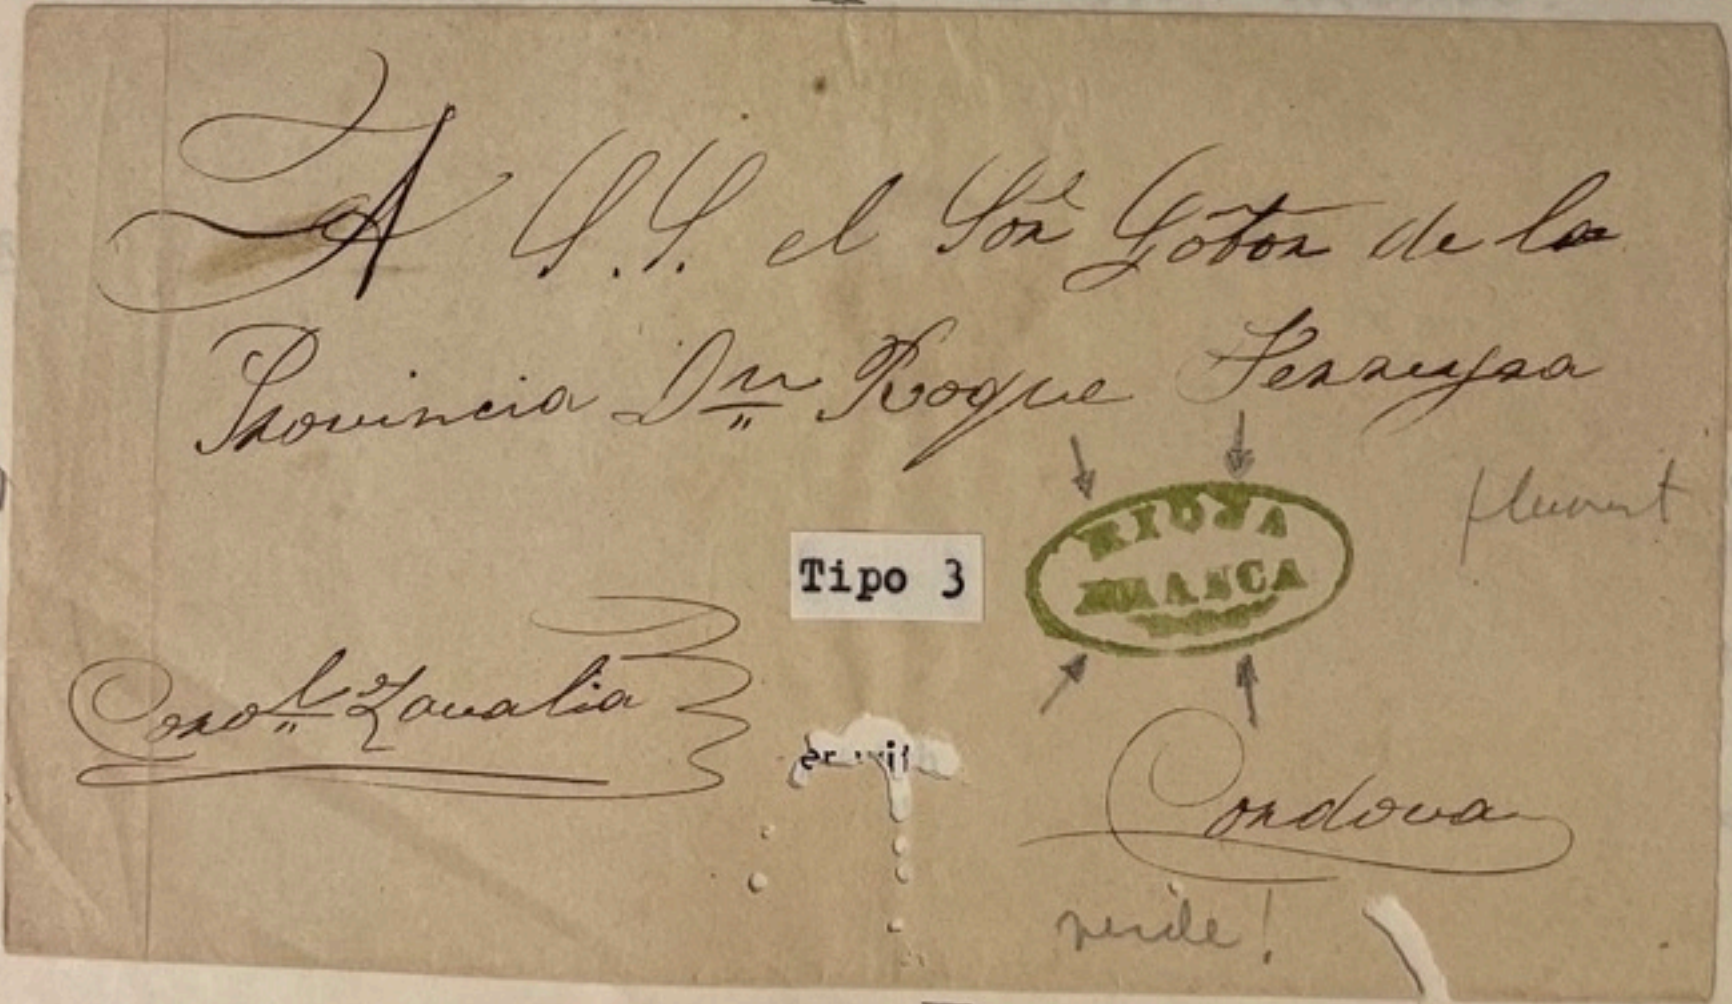 A S.S. el Sor Gobor de la
Provincia Dn Roque Ferreyra
RIOJA
FRANCA
Tipo 3
Corol Zavalia
Cordova
verde!